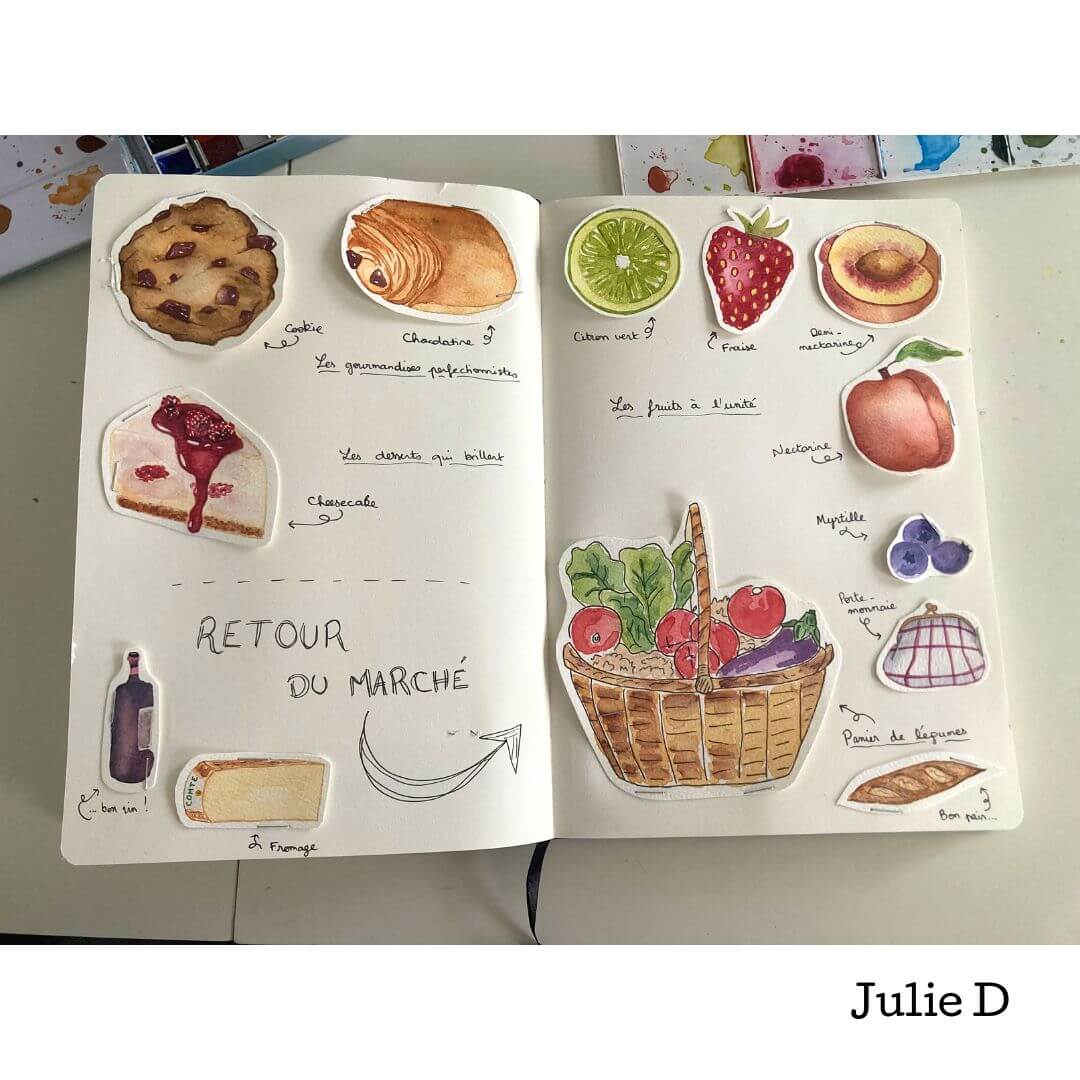 Cookie
Chocolatine
Les gourmandises perfectionnistes
Les desserts qui brillent
Cheesecake
RETOUR
DU MARCHÉ
... bon vin !
COMTÉ
Fromage
Citron vert
Fraise
Demi-
nectarine
Les fruits à l'unité
Nectarine
Myrtille
Porte-
monnaie
Panier de légumes
Bon pain...
Julie D